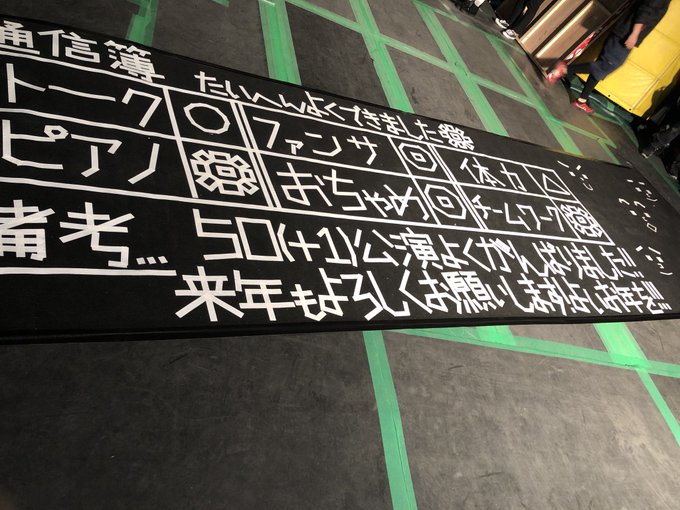 通信簿 たいへんよくできました
トーク ○ ファンサ ◎ 体力 △
ピアノ おちゃめ ◎ チームワーク
備考... 50(+1)公演よくがんばりました!!
来年もよろしくお願いします。よいお年を!!!